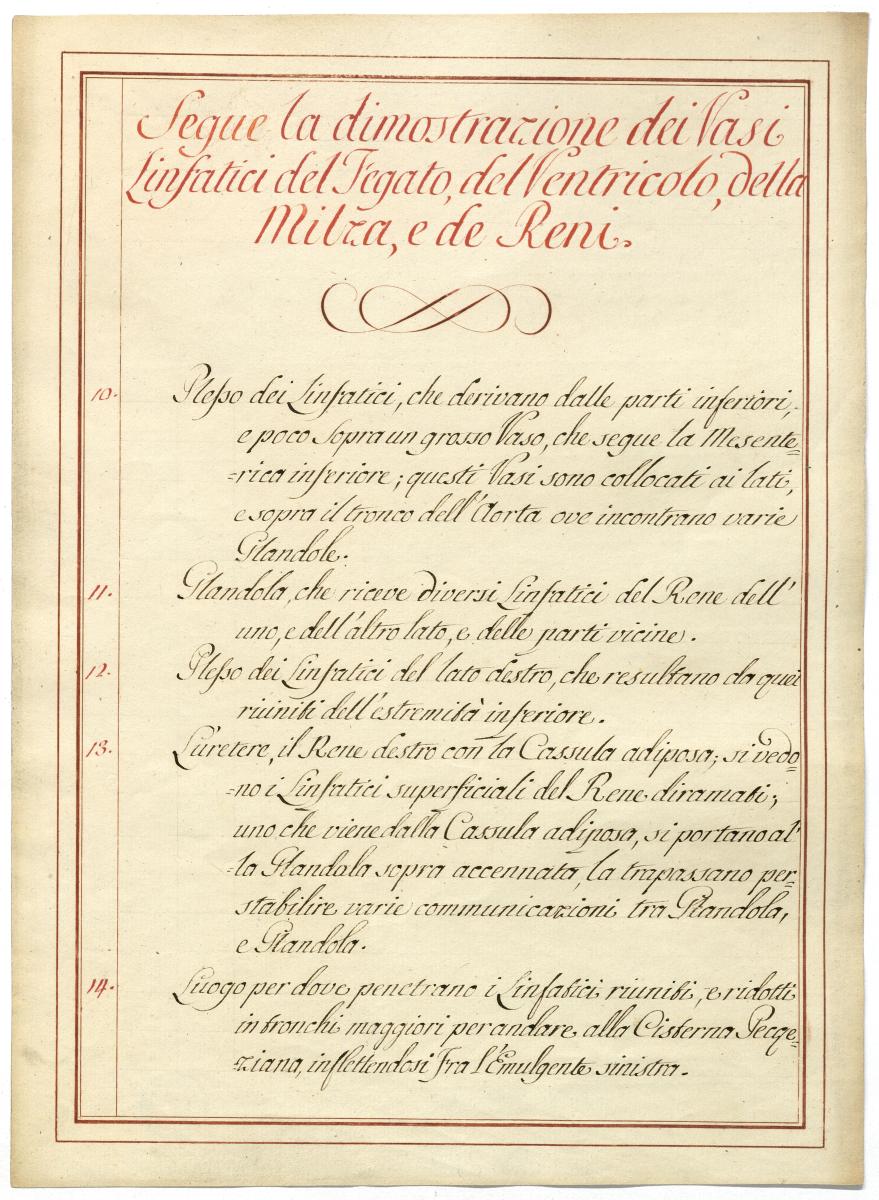 Segue la dimostrazione dei Vasi
Linfatici del Fegato, del Ventricolo, della
Milza, e de Reni.
10. Plesso dei Linfatici, che derivano dalle parti inferiori,
e poco sopra un grosso Vaso, che segue la Mesente=
=rica inferiore; questi Vasi sono collocati ai lati,
e sopra il tronco dell'Aorta ove incontrano varie
Glandole.
11. Glandola, che riceve diversi Linfatici del Rene dell'
uno, e dell'altro lato, e delle parti vicine.
12. Plesso dei Linfatici del lato destro, che resultano da quei
riuniti dell'estremità inferiore.
13. L'uretere, il Rene destro con la Cassula adiposa; si vedo=
=no i Linfatici superficiali del Rene diramati;
uno che viene dalla Cassula adiposa, si portano al'
=la Glandola sopra accennata, la trapassano per
stabilire varie communicazioni tra Glandola,
e Glandola.
14. Luogo per dove penetrano i Linfatici riuniti, e ridotti
in tronchi maggiori per andare alla Cisterna Pecqe=
=ziana, inflettendosi Fra l'Emulgente sinistra.